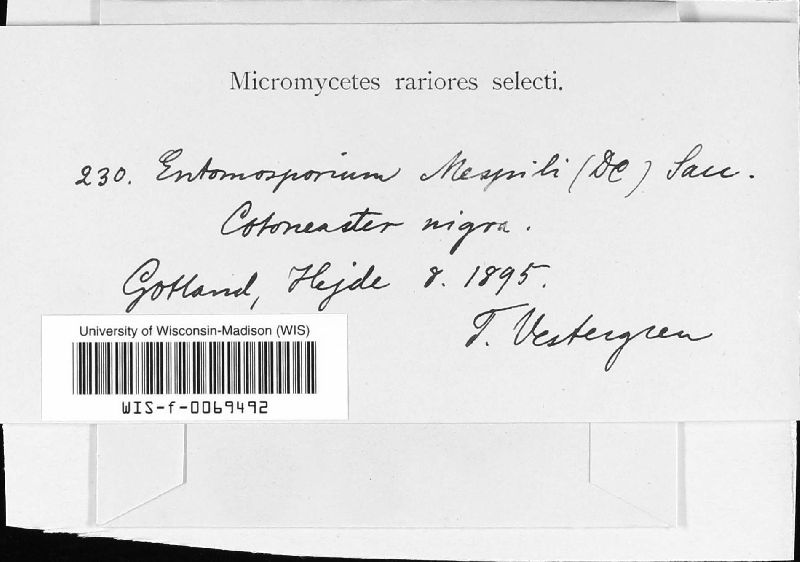 Micromycetes rariores selecti.
230. Entomosporium Mespili (DC) Sacc.
Cotoneaster nigra.
Gotland, Hejde 8. 1895.
T. Vestergren
University of Wisconsin-Madison (WIS)
WIS-f-0069492